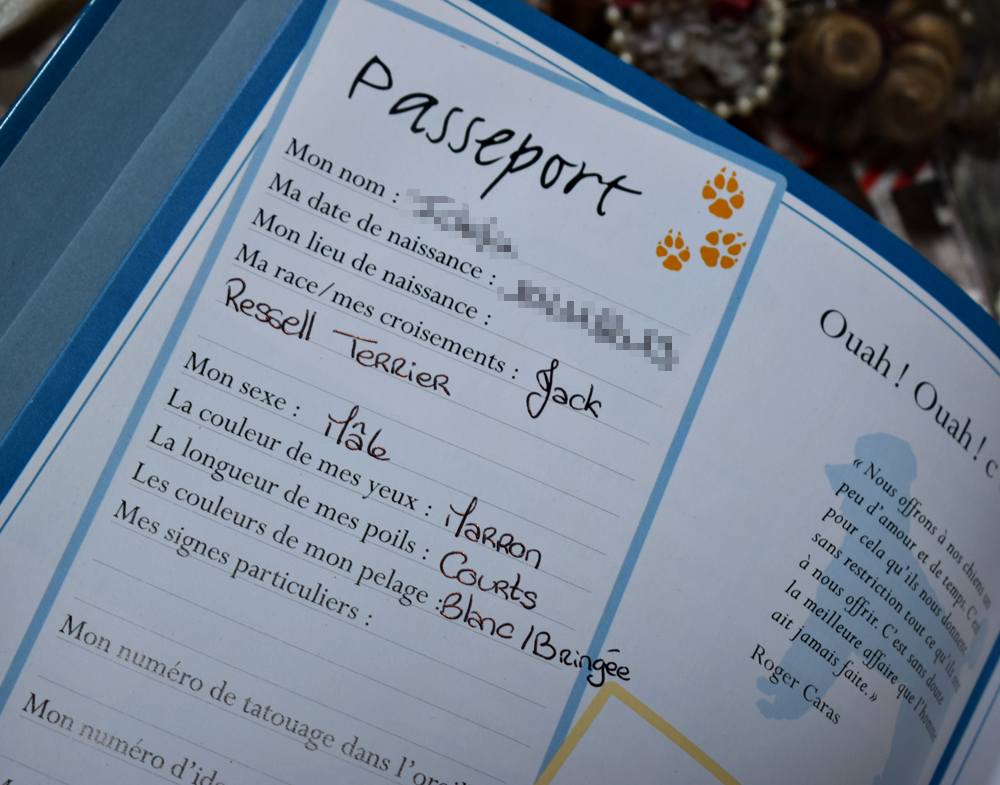 Passeport
Mon nom :
Ma date de naissance :
Mon lieu de naissance :
Ma race/mes croisements : Jack
Ressell Terrier
Mon sexe : Mâle
La couleur de mes yeux : Marron
La longueur de mes poils : Courts
Les couleurs de mon pelage : Blanc / Bringée
Mes signes particuliers :
Mon numéro de tatouage dans l'oreil
Mon numéro d'ide
Ouah ! Ouah ! c
« Nous offrons à nos chiens un
peu d'amour et de temps. C'est
pour cela qu'ils nous donnent
sans restriction tout ce qu'ils ont
à nous offrir. C'est sans doute
la meilleure affaire que l'homme
ait jamais faite. »
Roger Caras